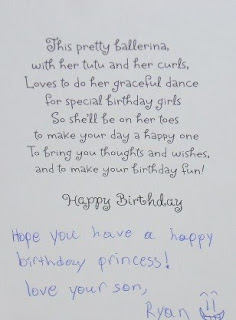 This pretty ballerina,
with her tutu and her curls,
Loves to do her graceful dance
for special birthday girls
So she'll be on her toes
to make your day a happy one
To bring you thoughts and wishes,
and to make your birthday fun!
Happy Birthday
Hope you have a happy
birthday princess!
love your son,
Ryan